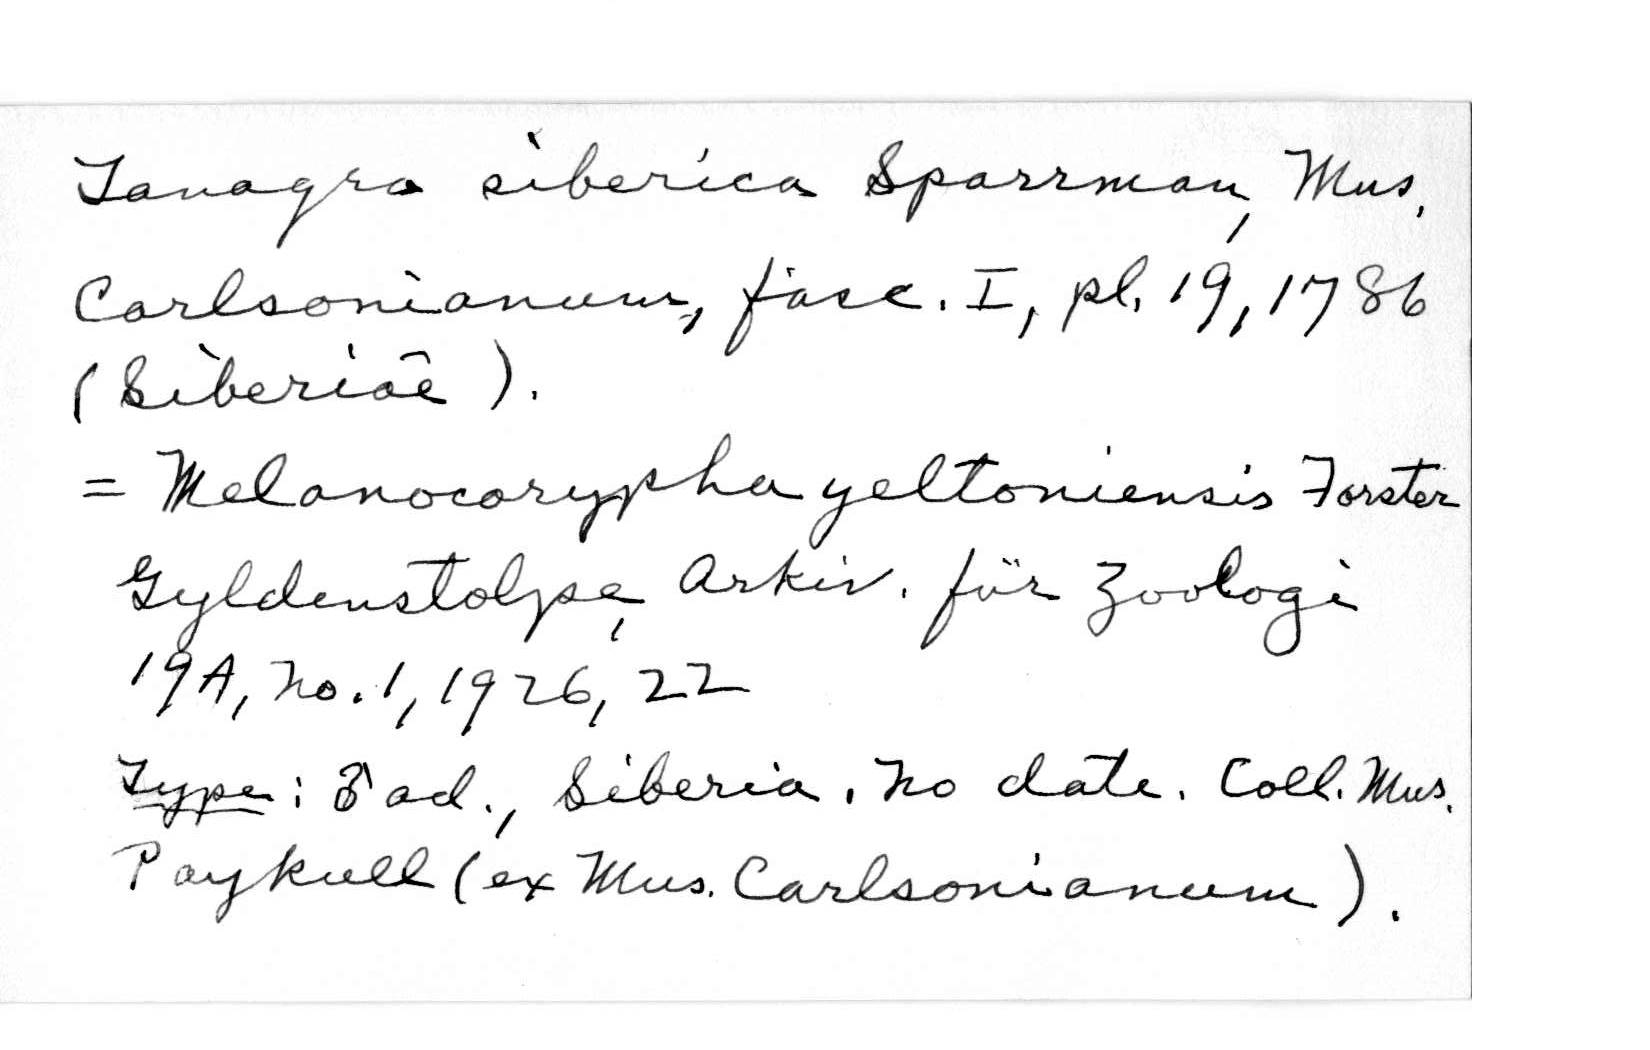 Tanagra siberica Sparrman, Mus.
Carlsonianum, fasc. I, pl. 19, 1786
(Siberiae).
= Melanocorypha yeltoniensis Forster
Gyldenstolpe, Arkiv. für Zoologi
19A, no. 1, 1926, 22
Type: ♂ ad., Siberia. No date. Coll. Mus.
Paykull (ex Mus. Carlsonianum).